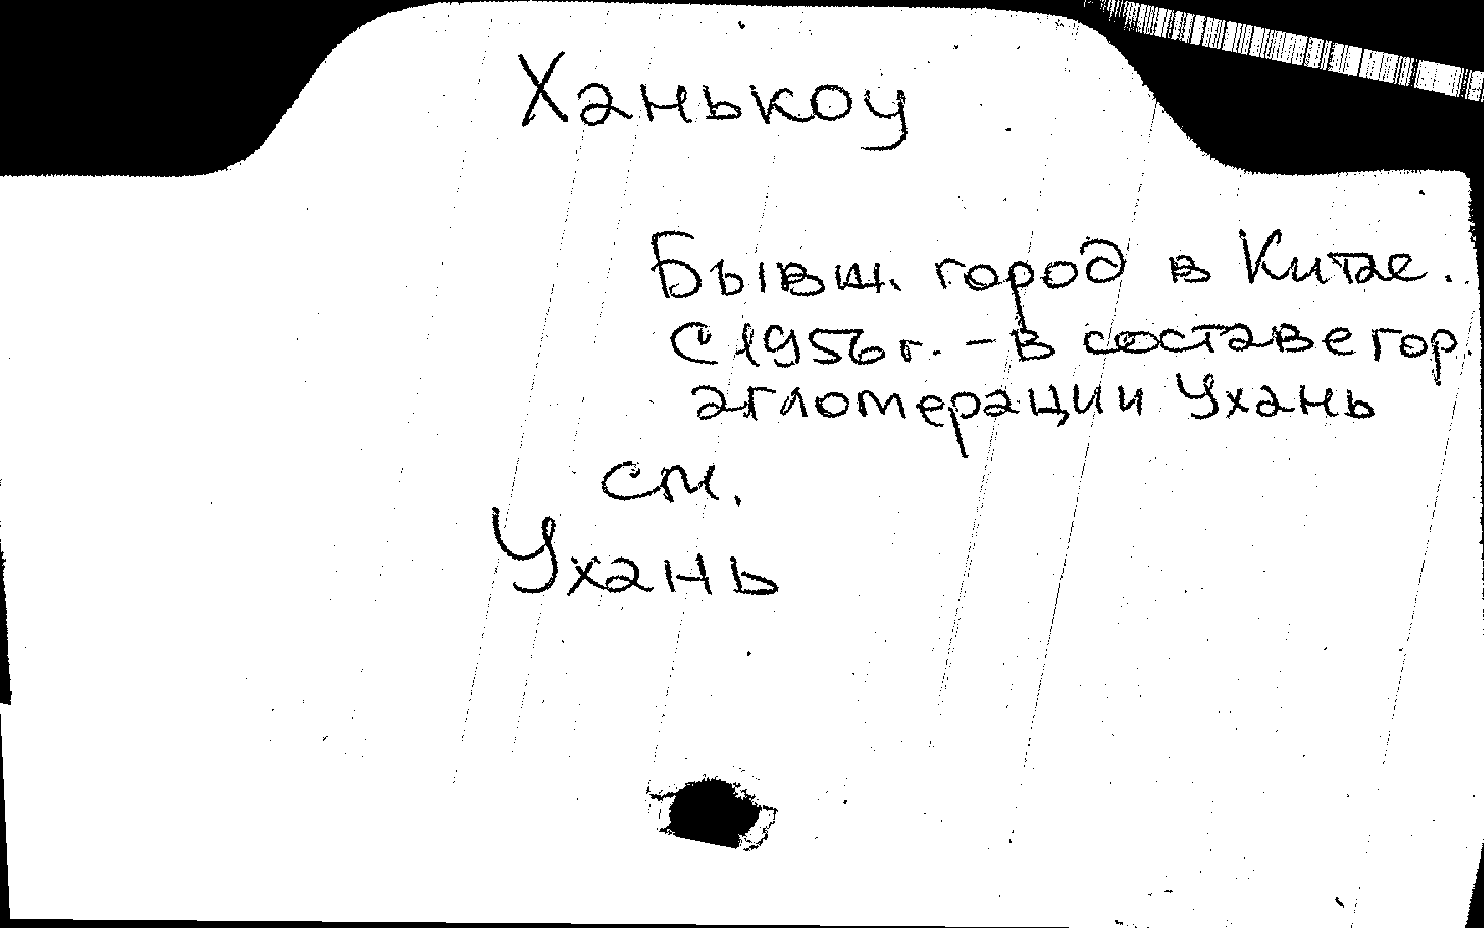 Ханькоу
Бывш. город в Китае.
С 1956 г. - в составе гор.
агломерации Ухань
см.
Ухань